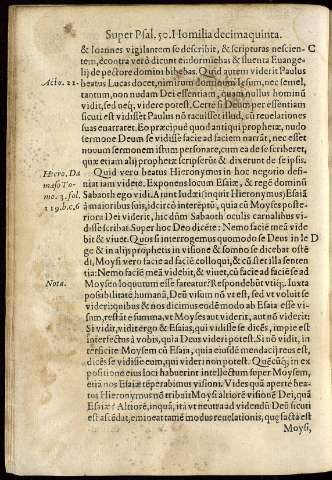 Super Psal. 50. Homilia decimaquinta.
& Ioannes vigilantem se describit, & scripturas nescien-
tem, & contra verò dicunt eū dormiebas & fluenta Euange-
lij de pectore domini bibebas. Quid autem viderit Paulus
Acto. 22. beatus Lucas docet, nimirum dominum Iesum, nec semel,
tantum, non nudam Dei essentiam, quam nullus hominū
vidit, sed neq; videre potest. Certè si Deum per essentiam
sicuti est vidisset Paulus nō tacuisset illud, cū reuelationes
suas enarraret. Eo præcipuè quod antiqui prophetæ, nudo
sermone Deum se vidisse facie ad faciem narrāt, nec esset
nouum sermonem istum personare, cum ea de se scriberet,
quæ etiam alij prophetæ scripserūt & dixerunt de se ipsis.
Hiero. Da Quid vero beatus Hieronymus in hoc negotio defi-
maso To niat iam videte. Exponens locum Esaiæ, & regē dominū
mo. 3. fol. Sabaoth ego vidi. Aiunt Iudæi (inquit Hieronymus) Esaiā
219. b. c. 6 à maioribus suis, idcirco interēptū, quia cū Moyses poste-
riora Dei viderit, hic dūm Sabaoth oculis carnalibus vidi-
disse scribat. Super hoc Deo dicēte: Nemo faciē meā vide
bit & viuet. Quos si interrogemus quomodo se Deus in le
ge & in alijs prophetis in visione & somno se dicat oste
di, Moysi vero facie ad faciē colloqui, & cū stet illa senten
tia: Nemo faciē meā videbit, & viuet, cū facie ad faciē se ad
Nota. Moysen loquutum esse fateatur? Respondebūt vtiq; Iuxta
posibilitatē humanā, Deū visum nō vt est, sed vt voluit se
videri: quibus & nos dicimus eodē modo ab Esaia esse vi-
sum, restat e summa, vt Moyses aut viderit, aut nō viderit:
Si vidit, vidit ergo & Esaias, qui vidisse se dicēs, impiè est
interfectus à vobis, quia Deus videri potest. Si nō vidit, in
terficite Moysem cū Esaia, quia eiusdē mendacij reus est,
dicēs se vidisse eum, qui videri non potest. Quēcūq; in ex-
positione eius loci habuerint intellectum super Moysem,
etiā nos Esaiæ tēperabimus visioni. Vides quā apertè bea-
tus Hieronymus nō tribuit Moysi altiorē visionē Dei, quā
Esaiæ? Altiorē, inquā, ita vt neutra ad vidēdū Deū sicuti
est ascēdat, enim eo tamē modus reuelationis, quę facta est
Moysi,